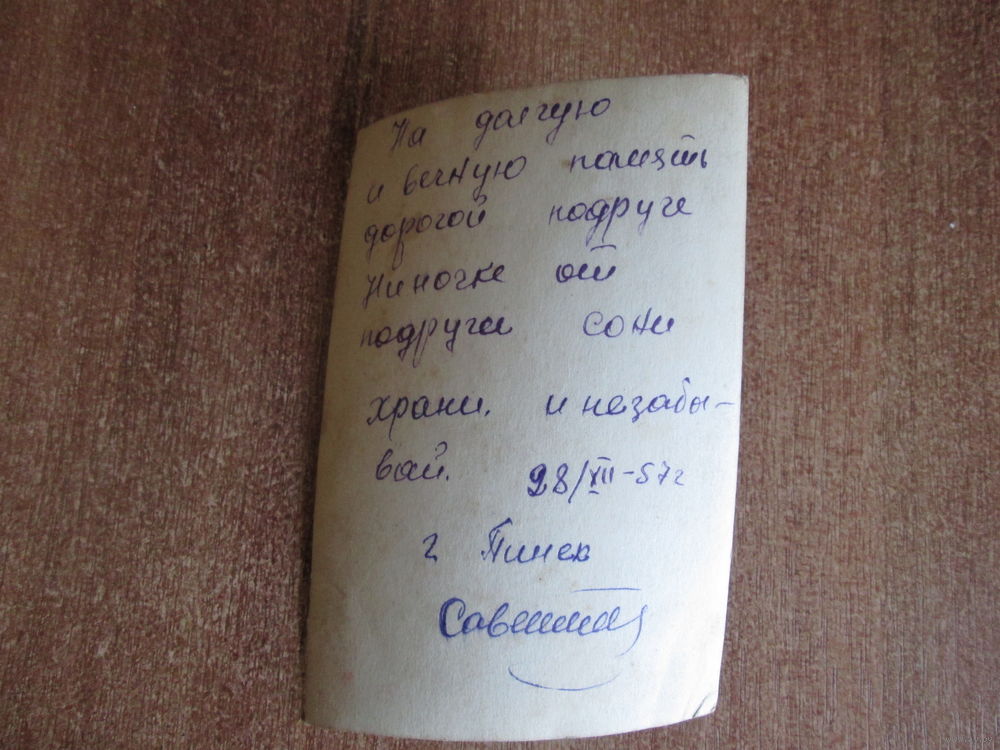 На долгую
и вечную память
дорогой подруге
Ниночке от
подруги Сони
храни. и незабы-
вай. 28/XII-57г
г Пинск